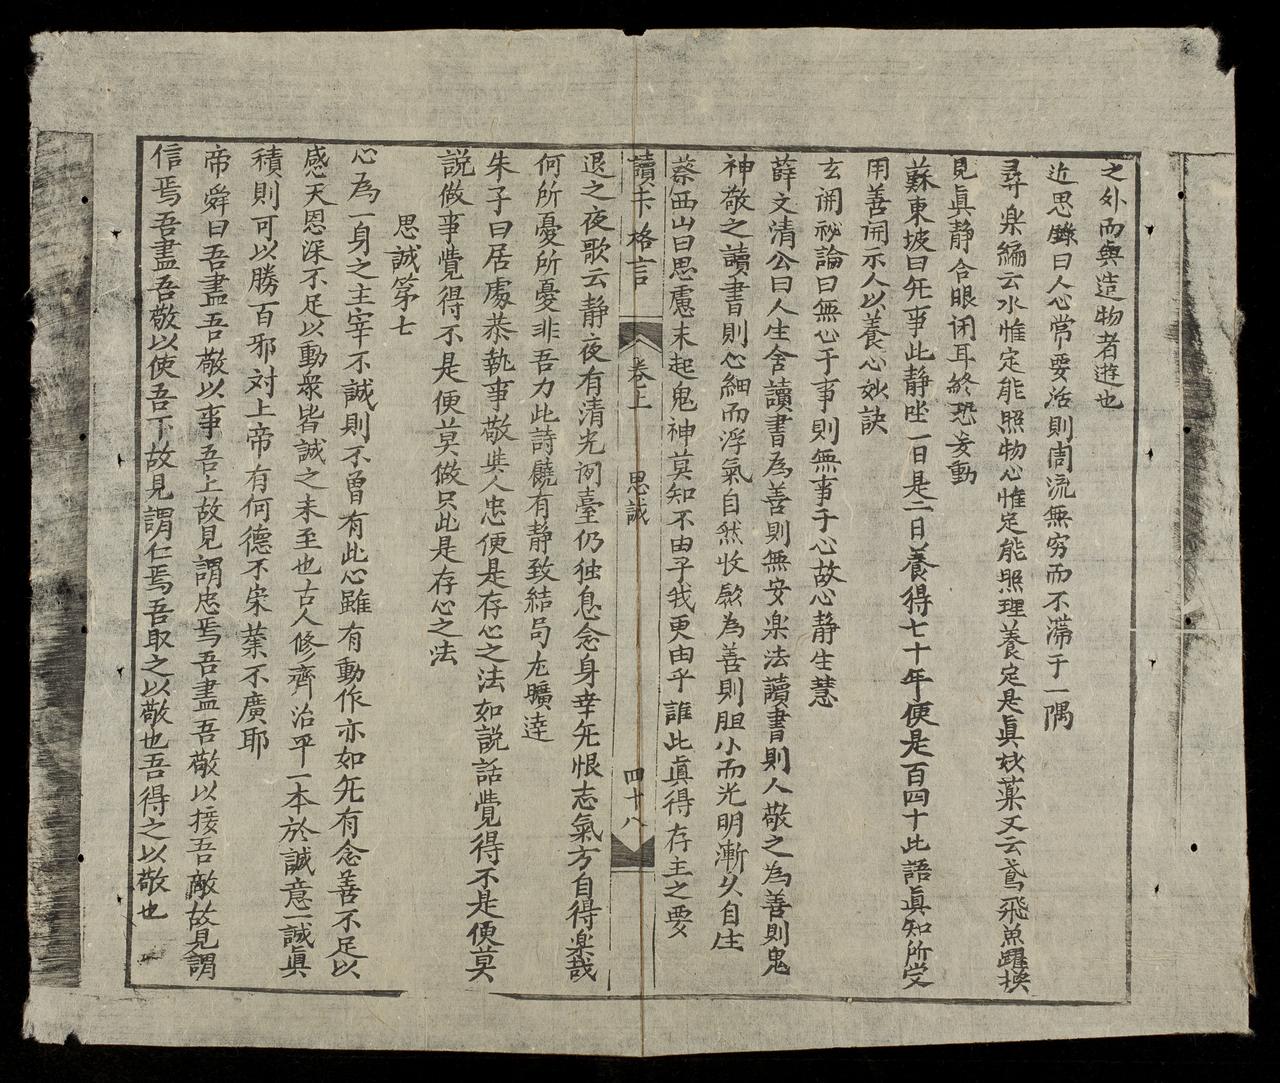 之外而與造物者遊也
近思錄曰人心常要活則周流無穷而不滯于一隅
尋楽編云水惟定能照物心惟定能照理養定是眞妙藥又云鳶飛魚躍換
見眞靜合眼闭耳終恐妄動
蘇東坡曰旡事此靜唑一日是二日養得七十年便是百四十此語眞知所受
用善開示人以養心妙訣
玄関祕論曰無心于事則無事于心故心静生慧
薛文清公曰人生舍讀書為善則無安楽法讀書則人敬之為善則鬼
神敬之讀書則心細而浮氣自然收歛為善則胆小而光明漸久自生
蔡西山曰思慮未起鬼神莫知不由乎我更由乎誰此眞得存主之要
讀未格言 卷上 思誠 四十八
退之夜歌云静夜有清光闲臺仍独息念身幸旡恨志氣方自得楽哉
何所憂所憂非吾力此詩饒有静致結局尤曠逹
朱子曰居處恭執事敬與人忠便是存心之法如説話覺得不是便莫
説做事覺得不是便莫做只此是存心之法
思誠第七
心為一身之主宰不誠則不曾有此心雖有動作亦如旡有念善不足以
感天恩深不足以動衆皆誠之未至也古人修齊治平一本於誠意一誠眞
積則可以勝百邪対上帝有何德不宗業不廣耶
帝舜曰吾盡吾敬以事吾上故見謂忠焉吾盡吾敬以接吾敵故見謂
信焉吾盡吾敬以使吾下故見謂仁焉吾取之以敬也吾得之以敬也